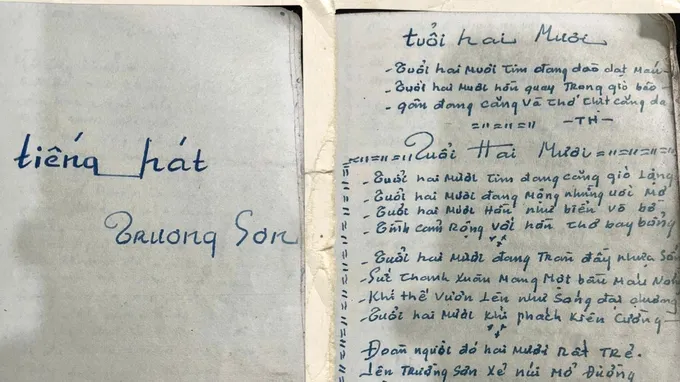 tiếng hát
Trương Sơn
tuổi hai Mươi
- Tuổi hai Mươi tim đang dào dạt Máu -
- Tuổi hai Mươi hồn quay Trong gió bão -
- gân đang căng và thớ thịt căng da
=11=11=11 -TH-
=11=11=11 Tuổi Hai Mươi =11=11=11=
- Tuổi hai Mươi tim đang căng gió Lộng
- Tuổi hai Mươi đang Mộng những ươi Mơ
- Tuổi hai Mươi Hồn như biển vỗ bờ
- Tình cảm Rộng Với hồn thơ bay bổng
- Tuổi hai Mươi đang Tràn đầy nhựa Sống
- Sức Thanh Xuân Mang Một bầu Máu Nóng
- Khí thế Vươn Lên như Sóng đại dương
- Tuổi hai Mươi khí phách Kiên Cường -
Đoàn người đó hai Mươi Rất TRẻ.
Lên Trường Sơn Xẻ núi Mở Đường